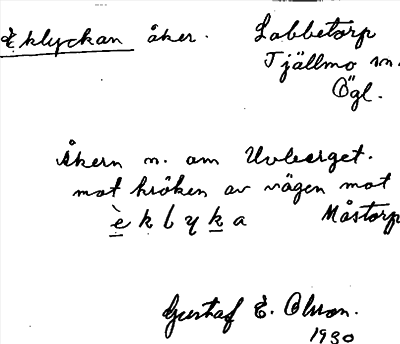 Eklyckan åker. Lobbetorp
Tjällmo sn.
Ögl.
Åkern n. om Uvberget.
mot kröken av vägen mot
èklyka Måstorp
Gustaf E. Olsson.
1930